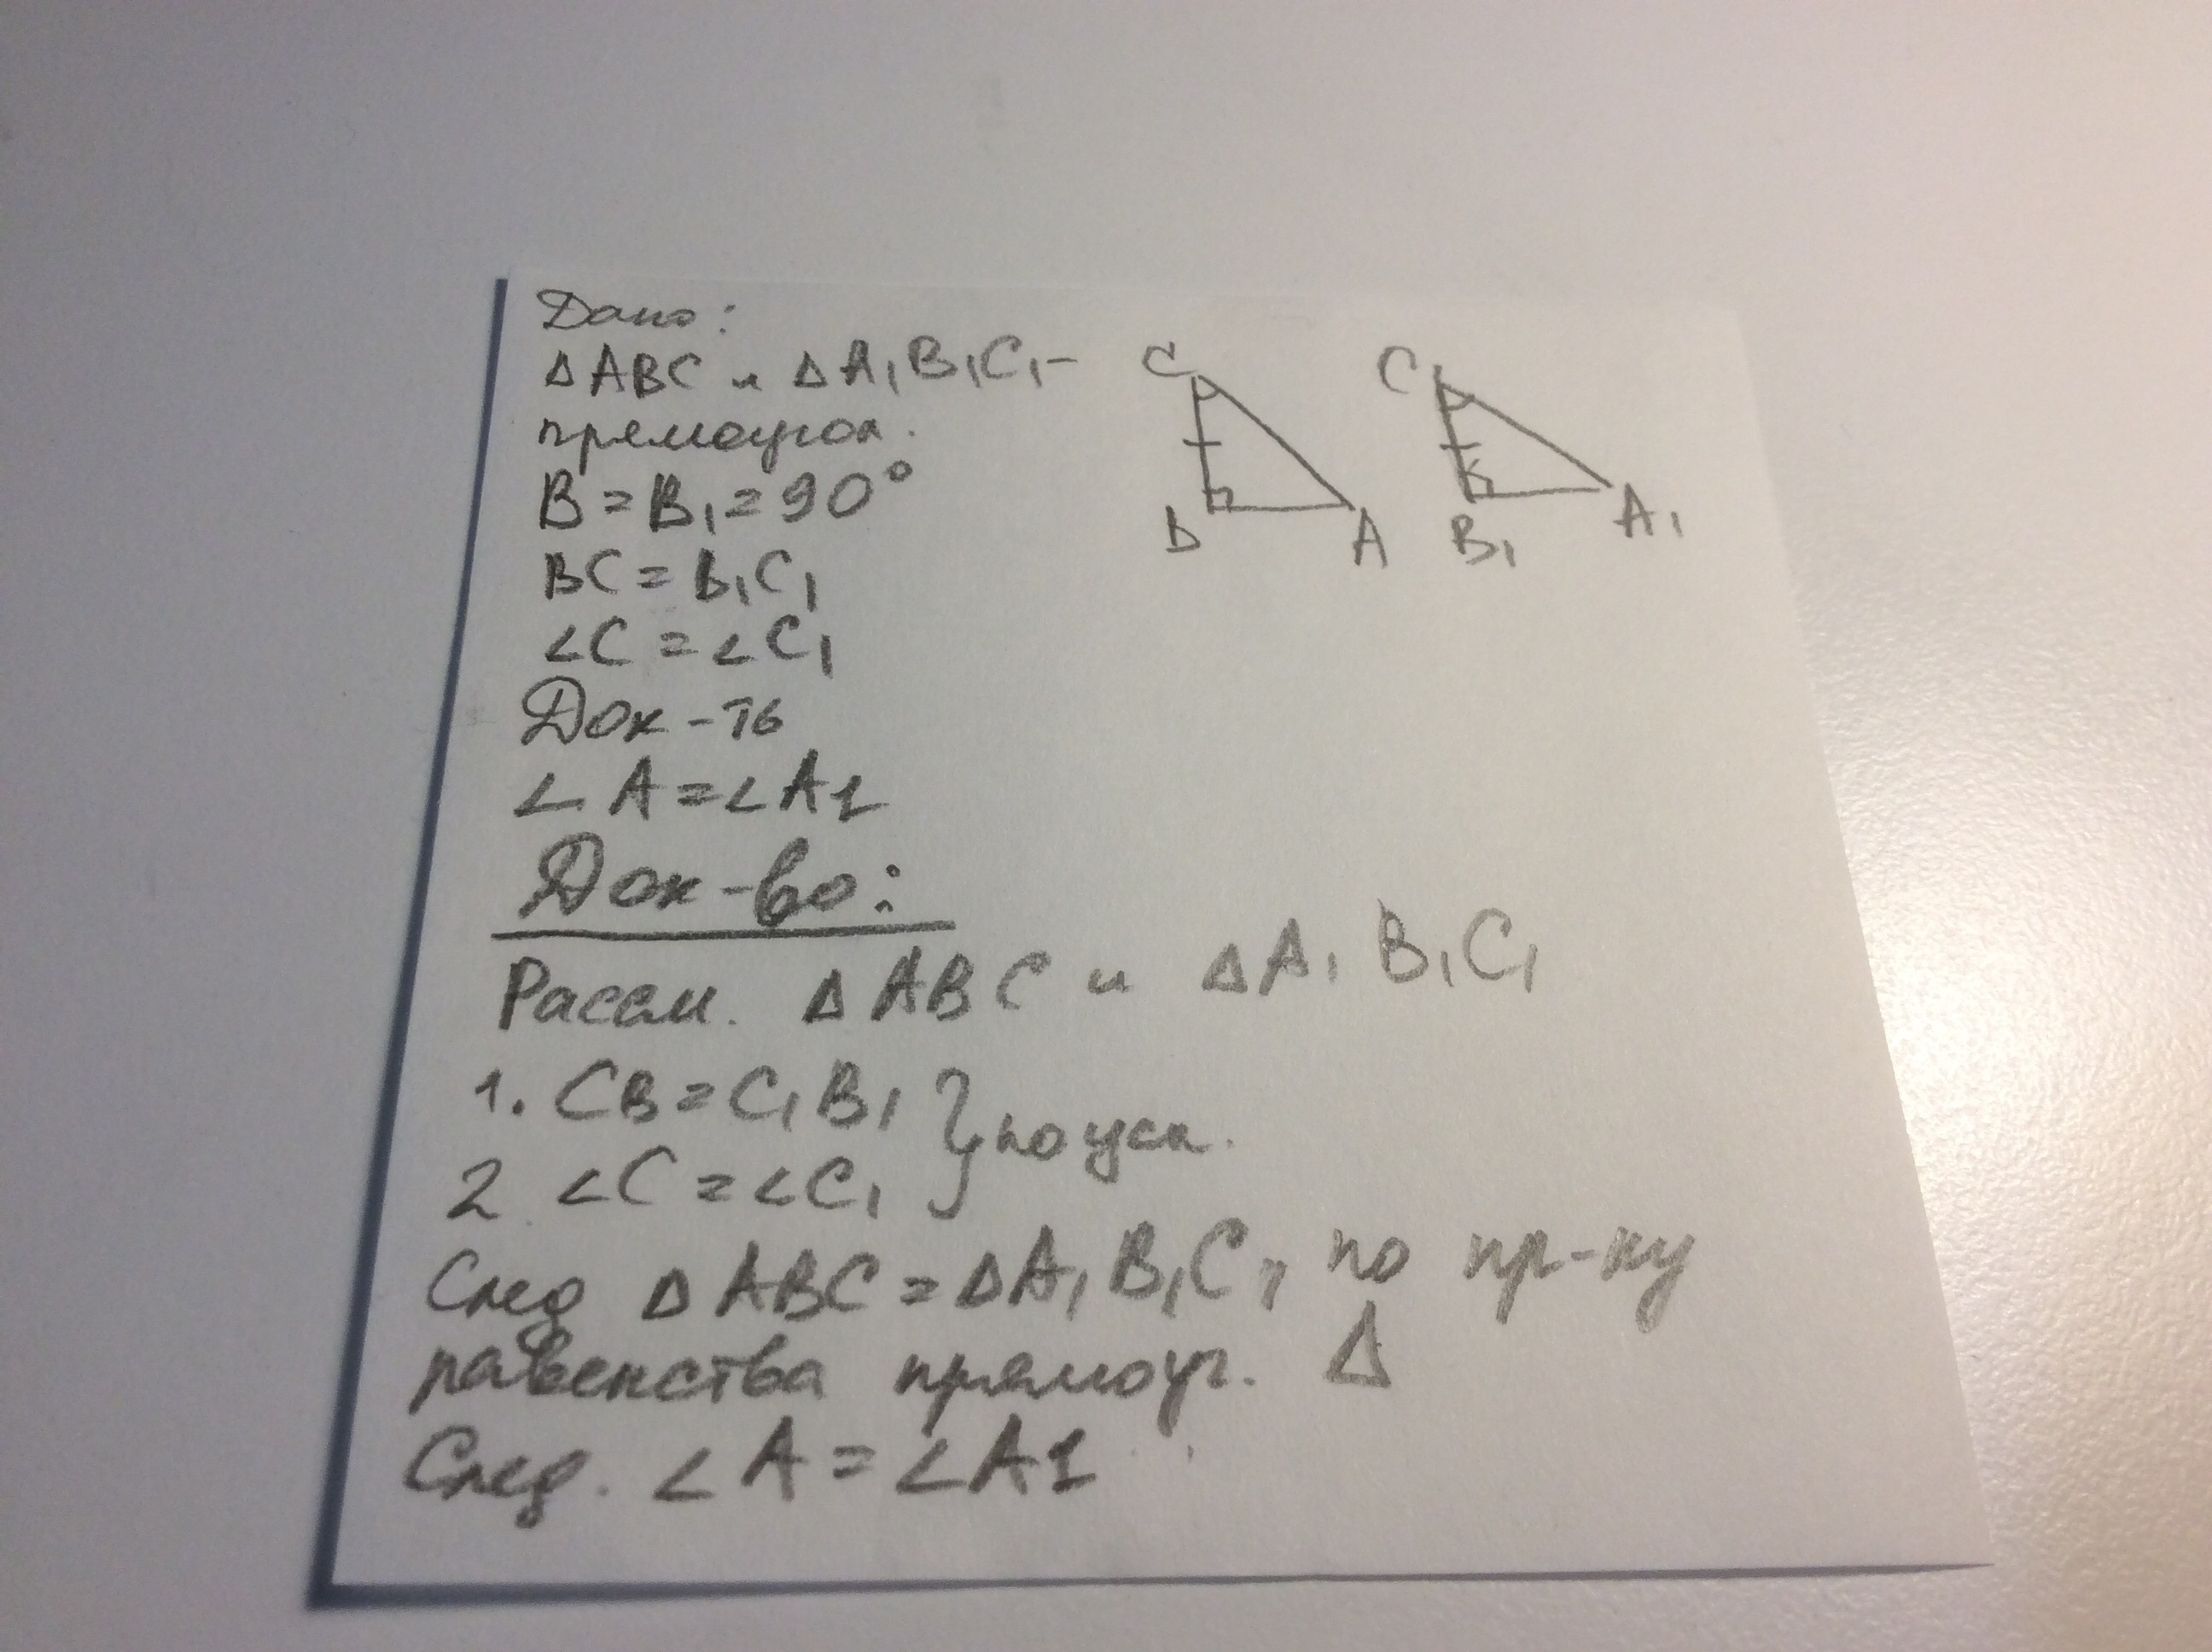 Дано:
∆ABC и ∆A₁B₁C₁ –
прямоугол.
B = B₁ = 90°
BC = B₁C₁
∠C = ∠C₁
Док-ть
∠A = ∠A1
Док-во:
Рассм. ∆ABC и ∆A₁B₁C₁
1. CB = C₁B₁ } по усл.
2. ∠C = ∠C₁
След ∆ABC = ∆A₁B₁C₁, по пр-ку
равенства прямоуг. ∆
След. ∠A = ∠A1
C
B
A
C
B₁
A₁